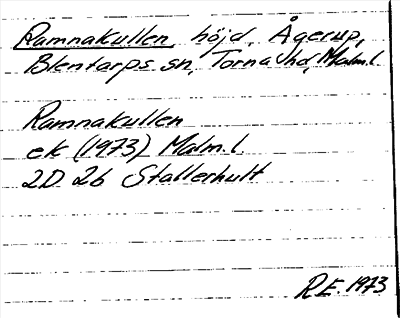 Ramnakullen höjd, Ågerup,
Blentarps sn, Torna hd, Malm.l.
Ramnakullen
ek (1973) Malm.l.
2D 2b Stallerhult
R.E. 1973